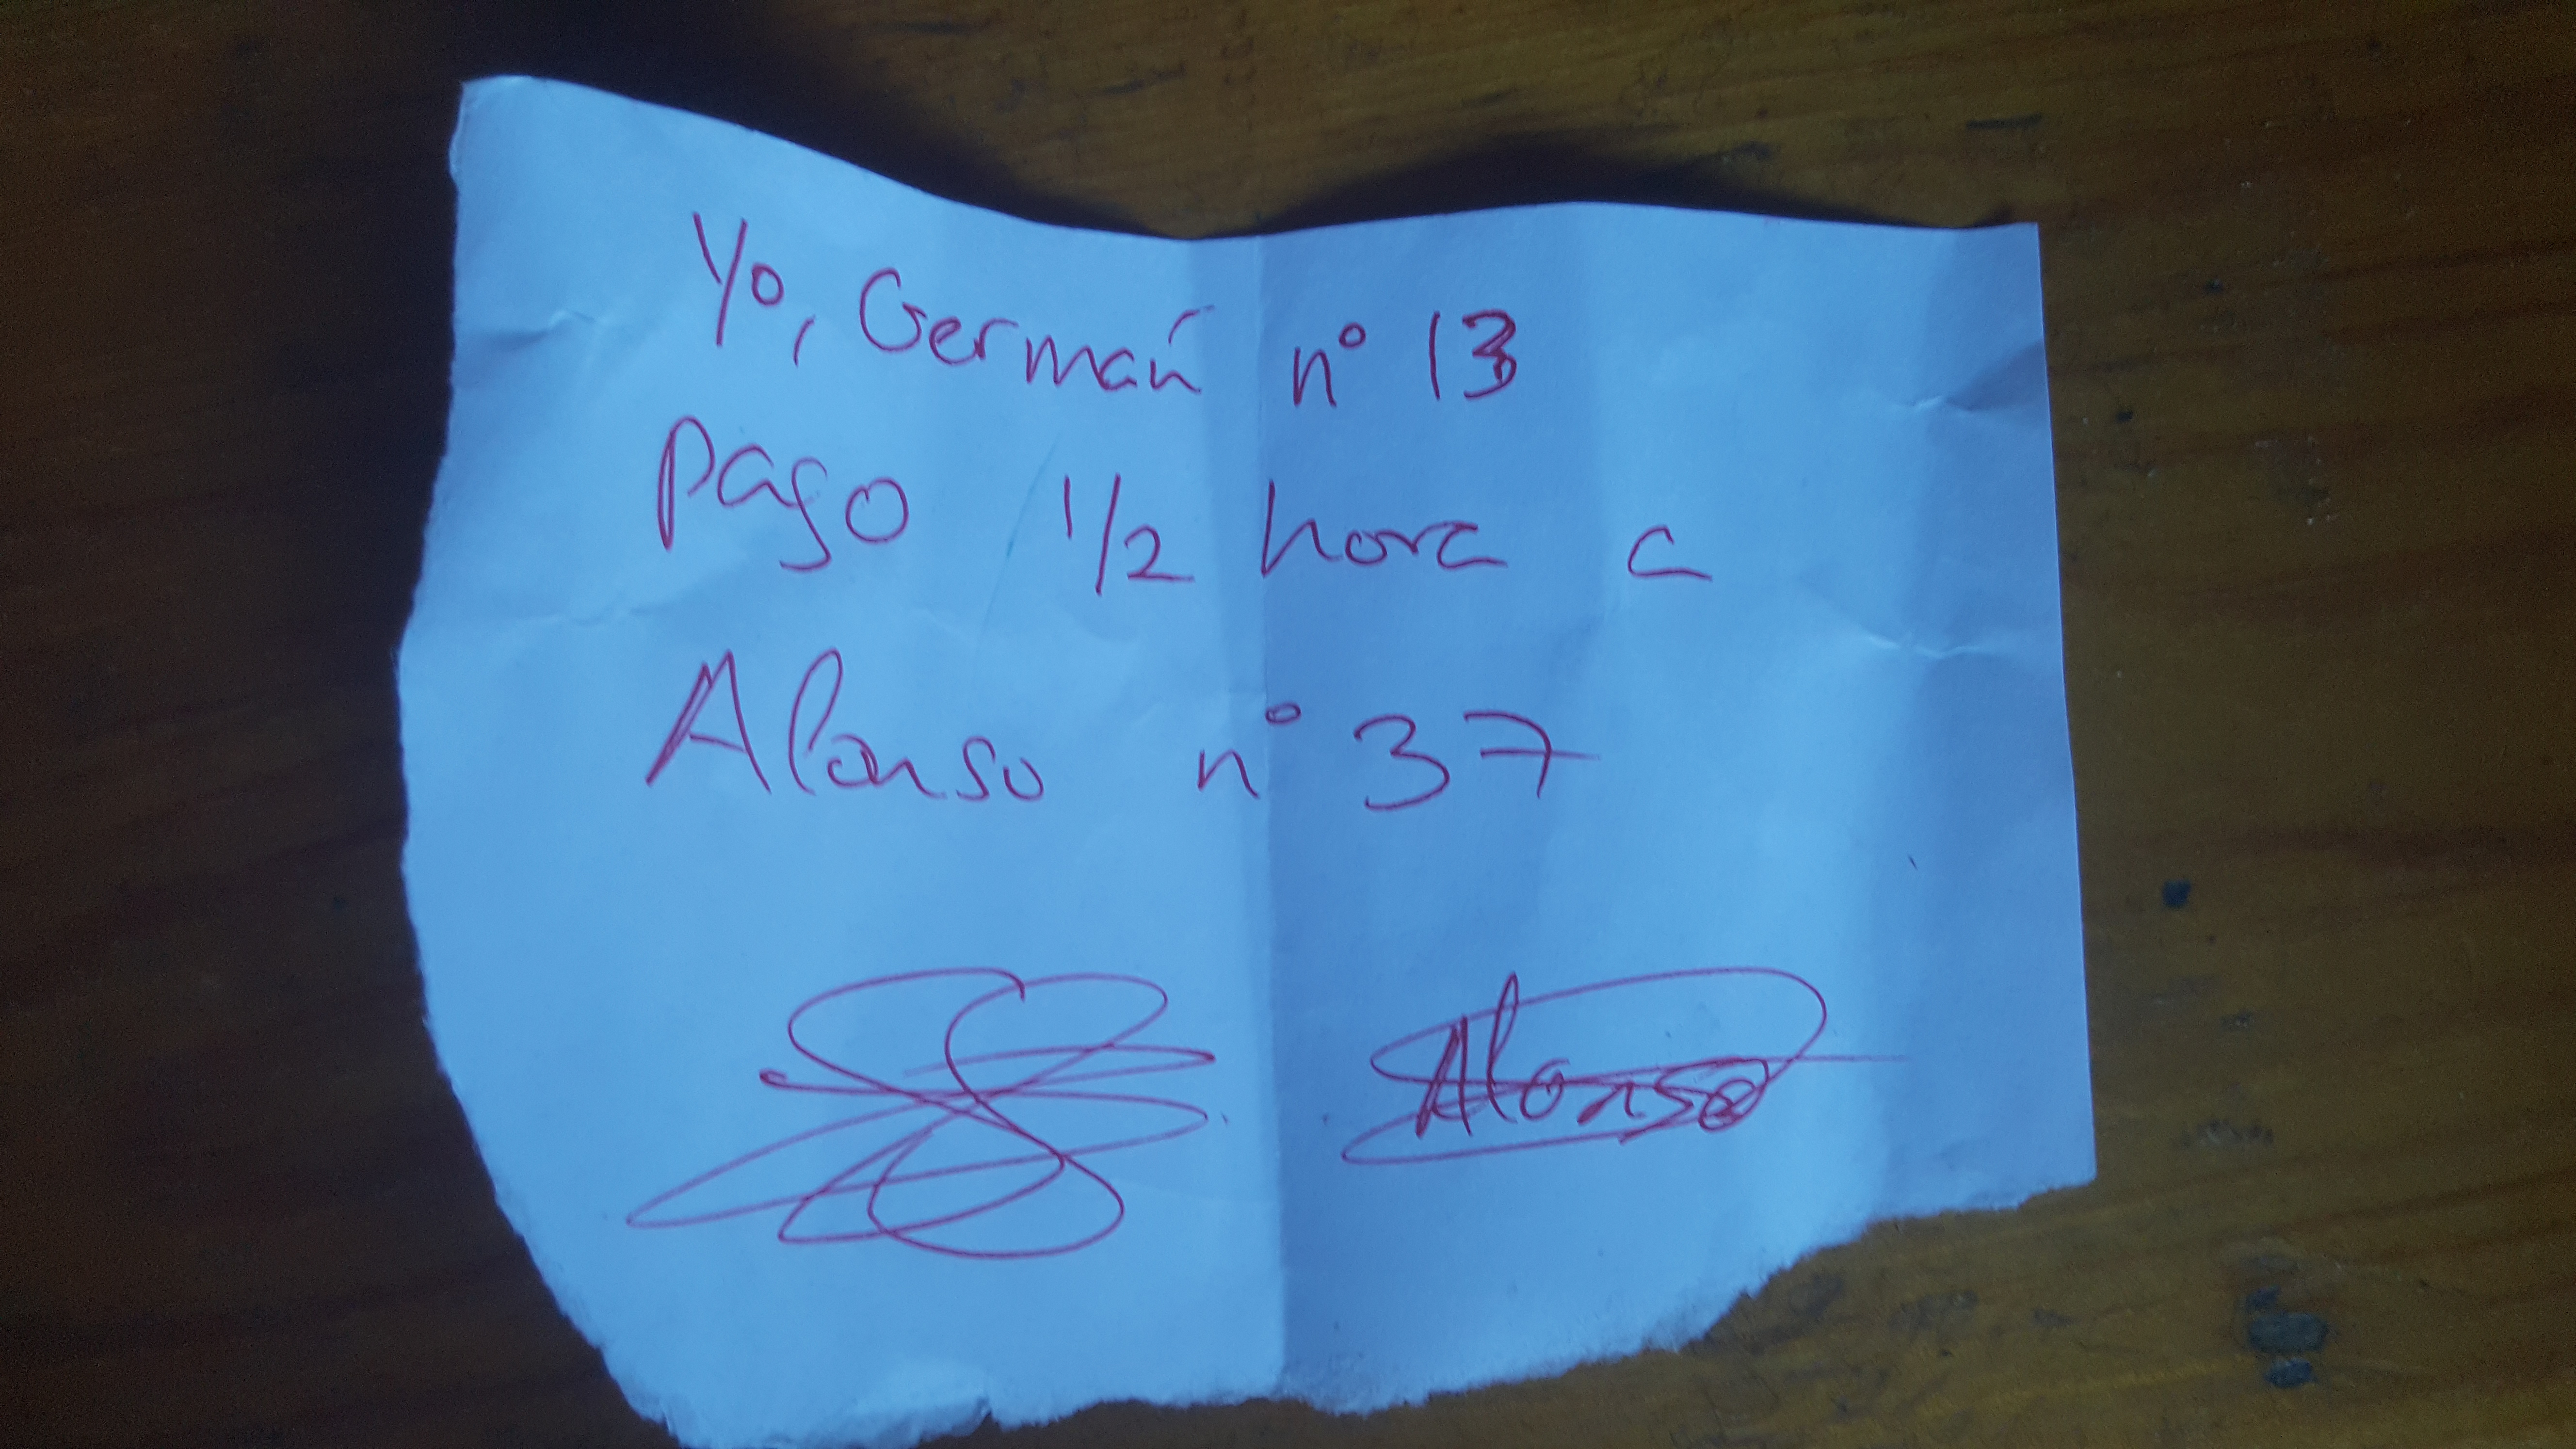 Yo, Germán nº 13
pago 1/2 hora a
Alonso nº 37
Alonso